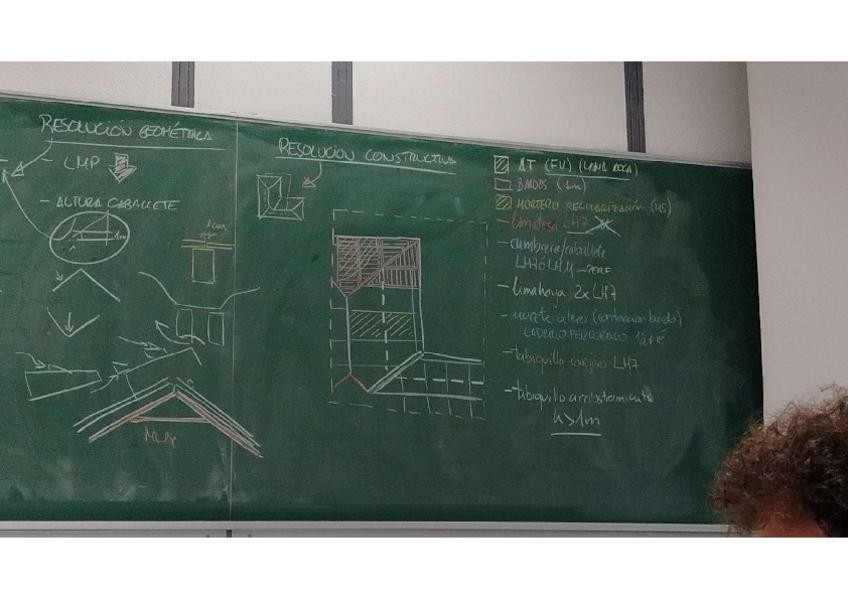 RESOLUCIÓN GEOMÉTRICA
- LMP
- ALTURA CABALLETE
1m
RESOLUCIÓN CONSTRUCTIVA
AT (FV) (LANA ROCA)
BARDOS (1m)
MORTERO REGULARIZACIÓN (M5)
- limatesa LH7
- cumbrera/caballete
LH7 ó LHM
- limahoya 2x LH7
- murete alero (contención bardo)
LADRILLO PERFORADO 1/2 pié
- tabiquillo conejero LH7
- tabiquillo arriostramiento
h>1m